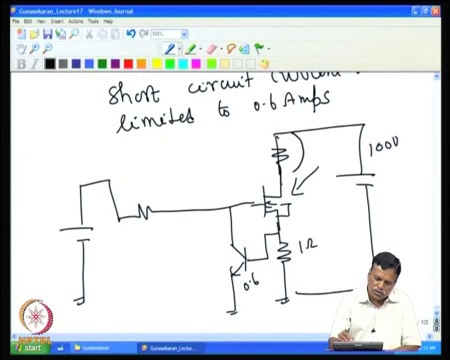 Gunasekaran_Lecture17 - Windows Journal
File Edit View Insert Actions Tools Help
100%
B I
Short circuit
limited to 0.6 Amps
100V
1Ω
0.6
start
Gunasekaran
Gunasekaran_Lectu...